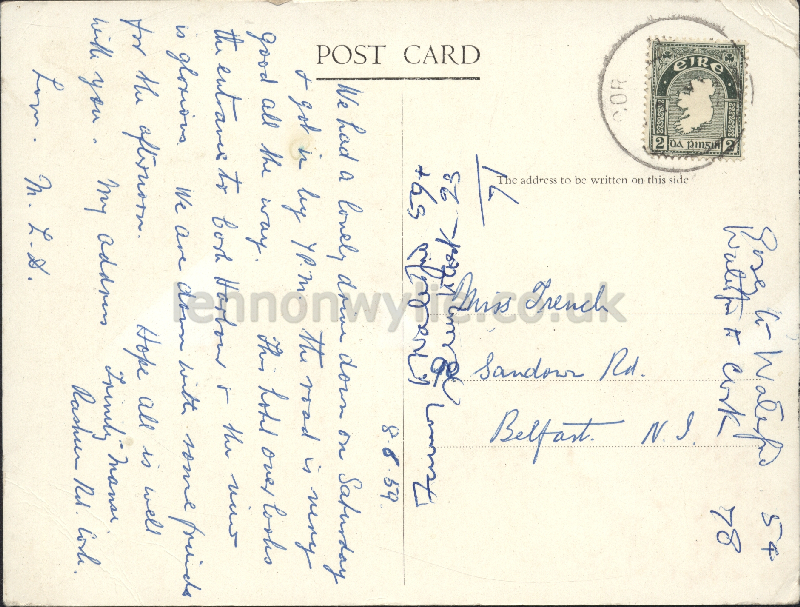 POST CARD
The address to be written on this side
8.8.59
We had a lovely drive down on Saturday
& got in by 7P.M. the road is very
good all the way. This hotel overlooks
the entrance to Cork Harbour & the view
is glorious. We are down with some friends
for the afternoon. Hope all is well
with you. My address Trinity Manse
Rd. Cork.
Love. M. L. D.
Miss Trench
Sandown Rd.
Belfast. N.I.
EIRE
2 2
COR
Waterford 54
Waterford to Cork 78
lennonwylie.co.uk